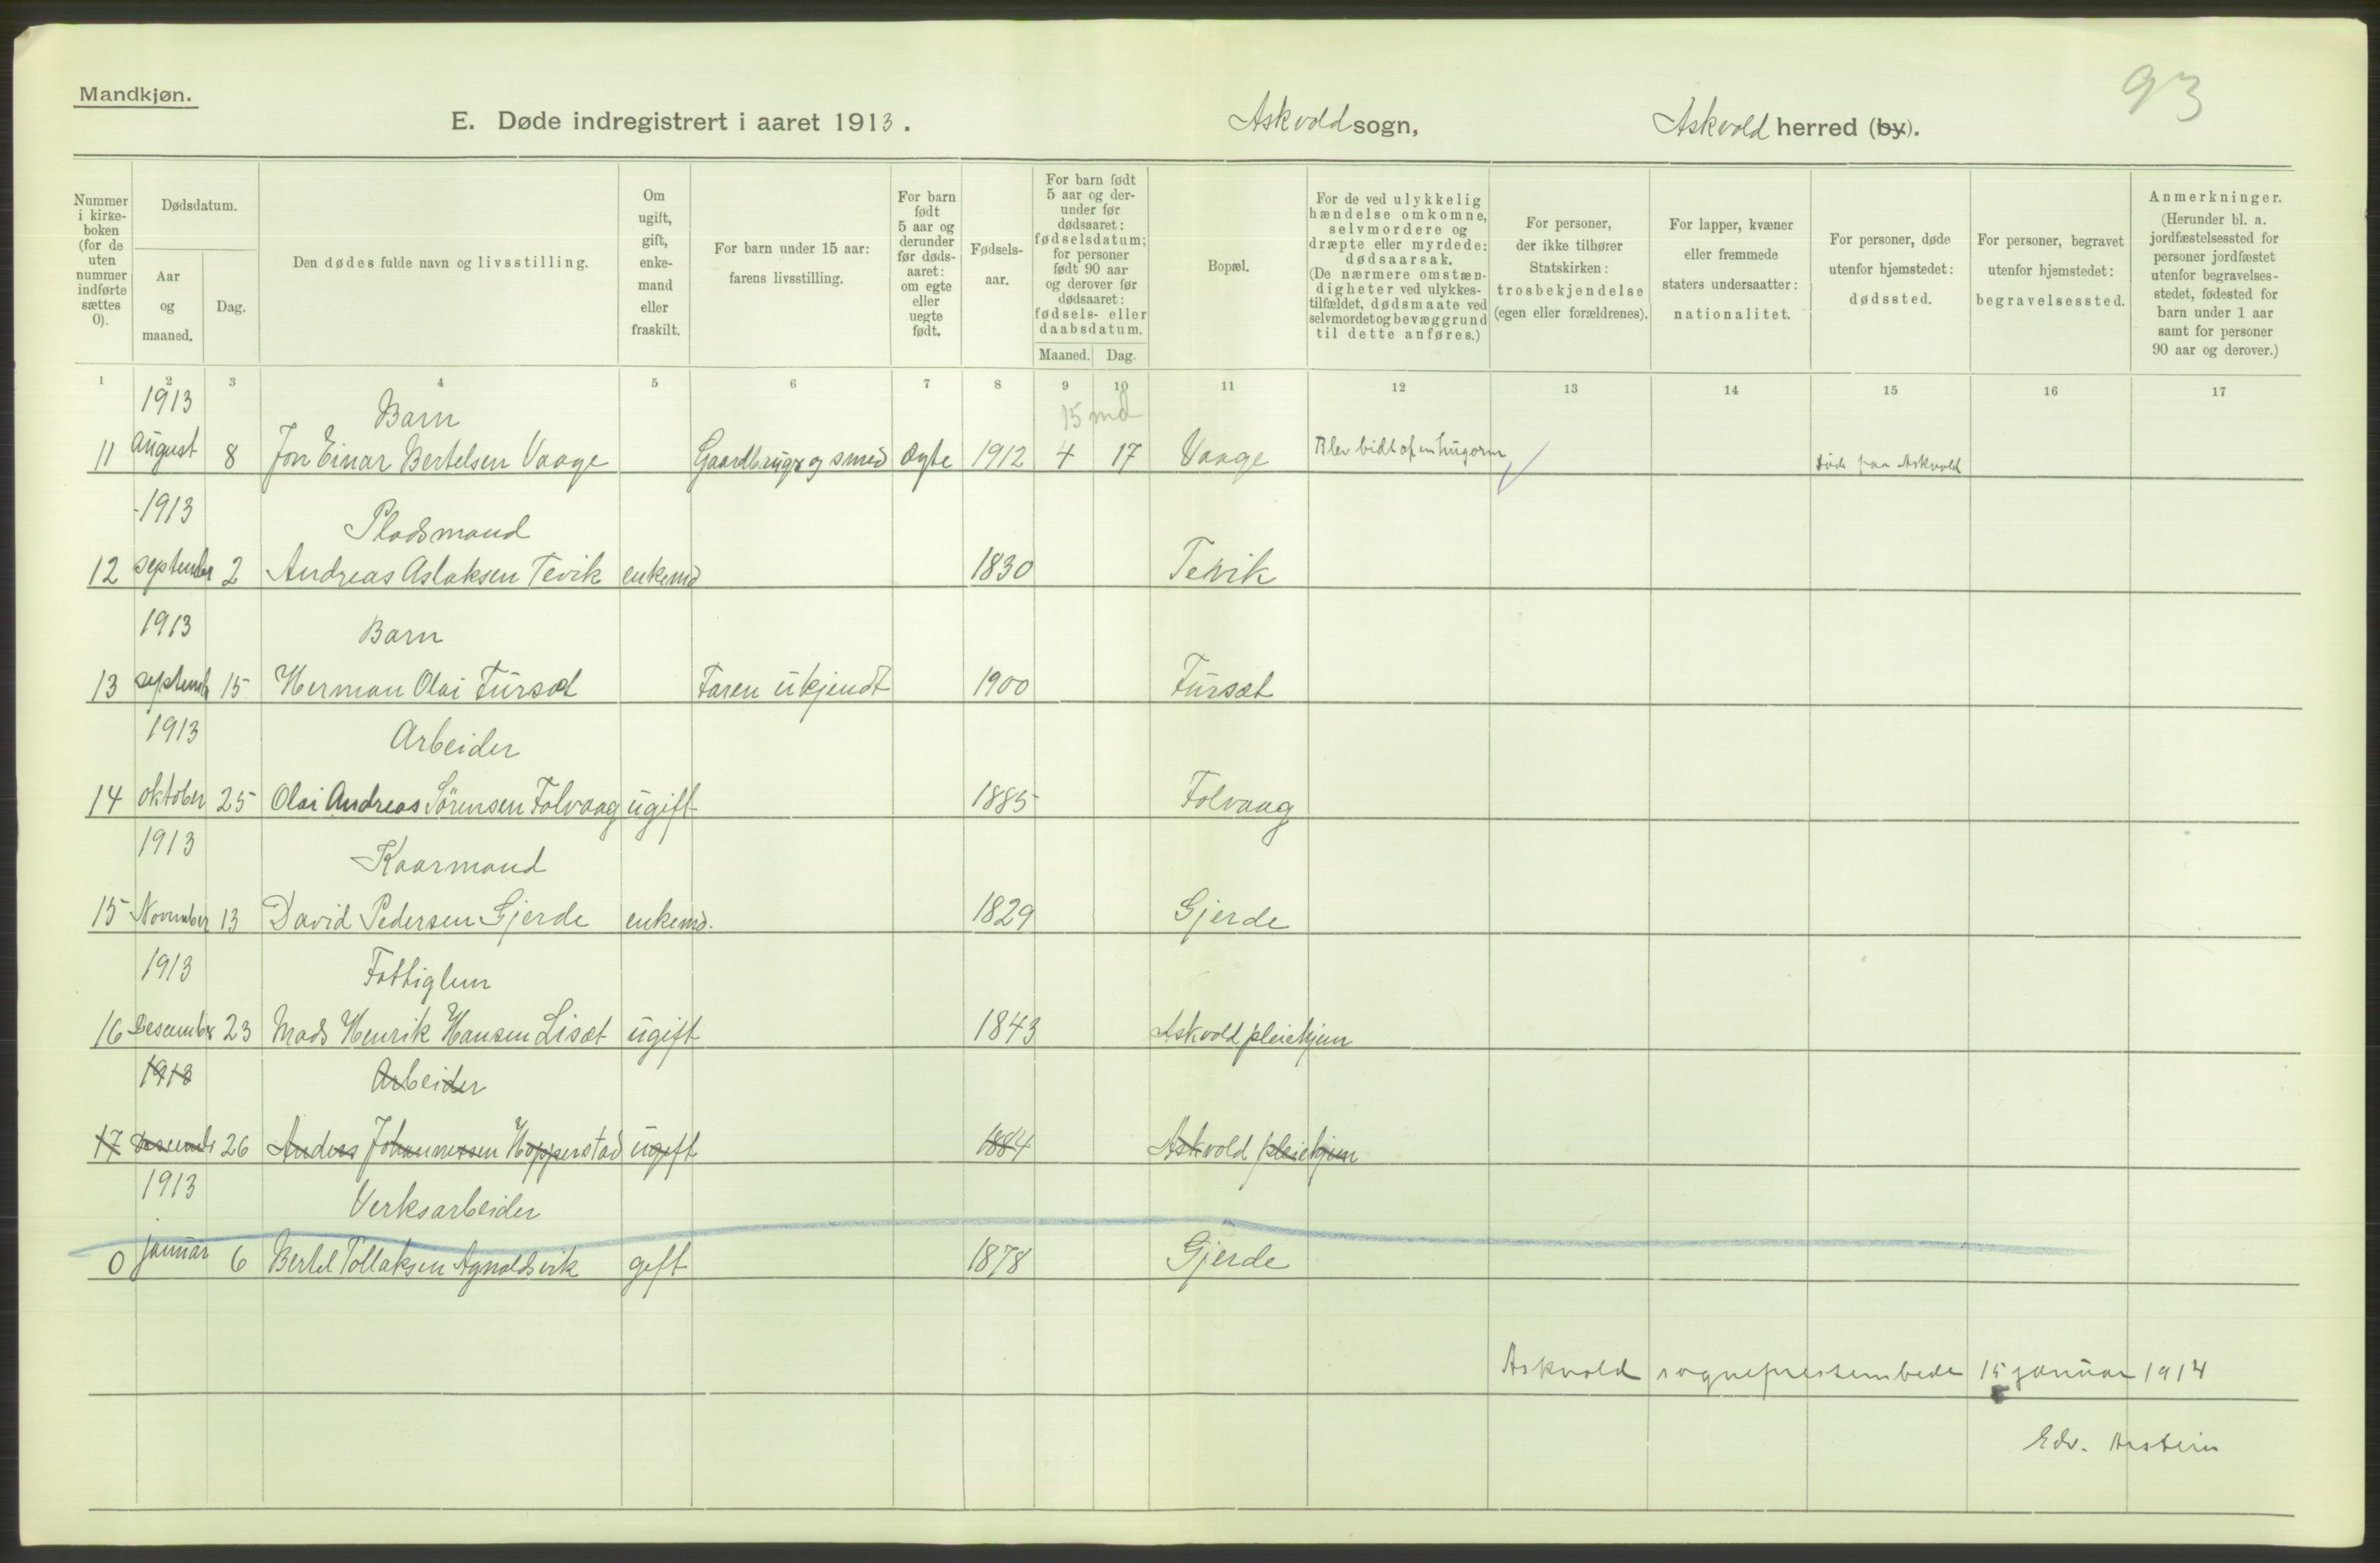 93
Mandkjøn.
E. Døde indregistrert i aaret 1913.
Askvold sogn,
Askvold herred (by).
Nummer i kirke-boken (for de uten nummer indførte sættes 0).
Dødsdatum.
Aar og maaned.
Dag.
Den dødes fulde navn og livsstilling.
Om ugift, gift, enke-mand eller fraskilt.
For barn under 15 aar: farens livsstilling.
For barn født 5 aar og derunder før døds-aaret: om egte eller uegte født.
Fødsels-aar.
For barn født 5 aar og der-under før dødsaaret: fødselsdatum; for personer født 90 aar og derover før dødsaaret: fødsels- eller daabsdatum.
Maaned.
Dag.
Bopæl.
For de ved ulykkelig hændelse omkomne, selvmordere og dræpte eller myrdede: dødsaarsak. (De nærmere omstæn-digheter ved ulykkes-tilfældet, dødsmaate ved selvmordet og bevæggrund til dette anføres.)
For personer, der ikke tilhører Statskirken: trosbekjendelse (egen eller forældrenes).
For lapper, kvæner eller fremmede staters undersaatter: nationalitet.
For personer, døde utenfor hjemstedet: dødssted.
For personer, begravet utenfor hjemstedet: begravelsessted.
Anmerkninger. (Herunder bl. a. jordfæstelsessted for personer jordfæstet utenfor begravelses-stedet, fødested for barn under 1 aar samt for personer 90 aar og derover.)
1 2 3 4 5 6 7 8 9 10 11 12 13 14 15 16 17
1913 Barn 15 md
11 august 8 Jon Einar Bertelsen Vaage Gaardbruger og smed Ægte 1912 4 17 Vaage Blev bidt af en hugorm Døde paa Askvold
1913 Pladsmand
12 september 2 Andreas Aslaksen Tevik enkemd 1830 Tevik
1913 Barn
13 septembr 15 Herman Olai Fursæt Faren ukjendt 1900 Fursæt
1913 Arbeider
14 oktober 25 Olai Andreas Sörensen Folvaag ugift 1885 Folvaag
1913 Kaarmand
15 November 13 David Pedersen Gjerde enkemd. 1829 Gjerde
1913 Fattiglem
16 Desember 23 Mads Henrik Hansen Lisæt ugift 1843 Askvold pleiehjem
1913 Arbeider
17 Desembr 26 Anders Johannessen Hopperstad ugift 1884 Askvold pleiehjem
1913 Verksarbeider
0 januar 6 Bertel Tollaksen Agnoldsvik gift 1878 Gjerde
Askvold sogneprestembede 15 januar 1914
Edv. Arstein